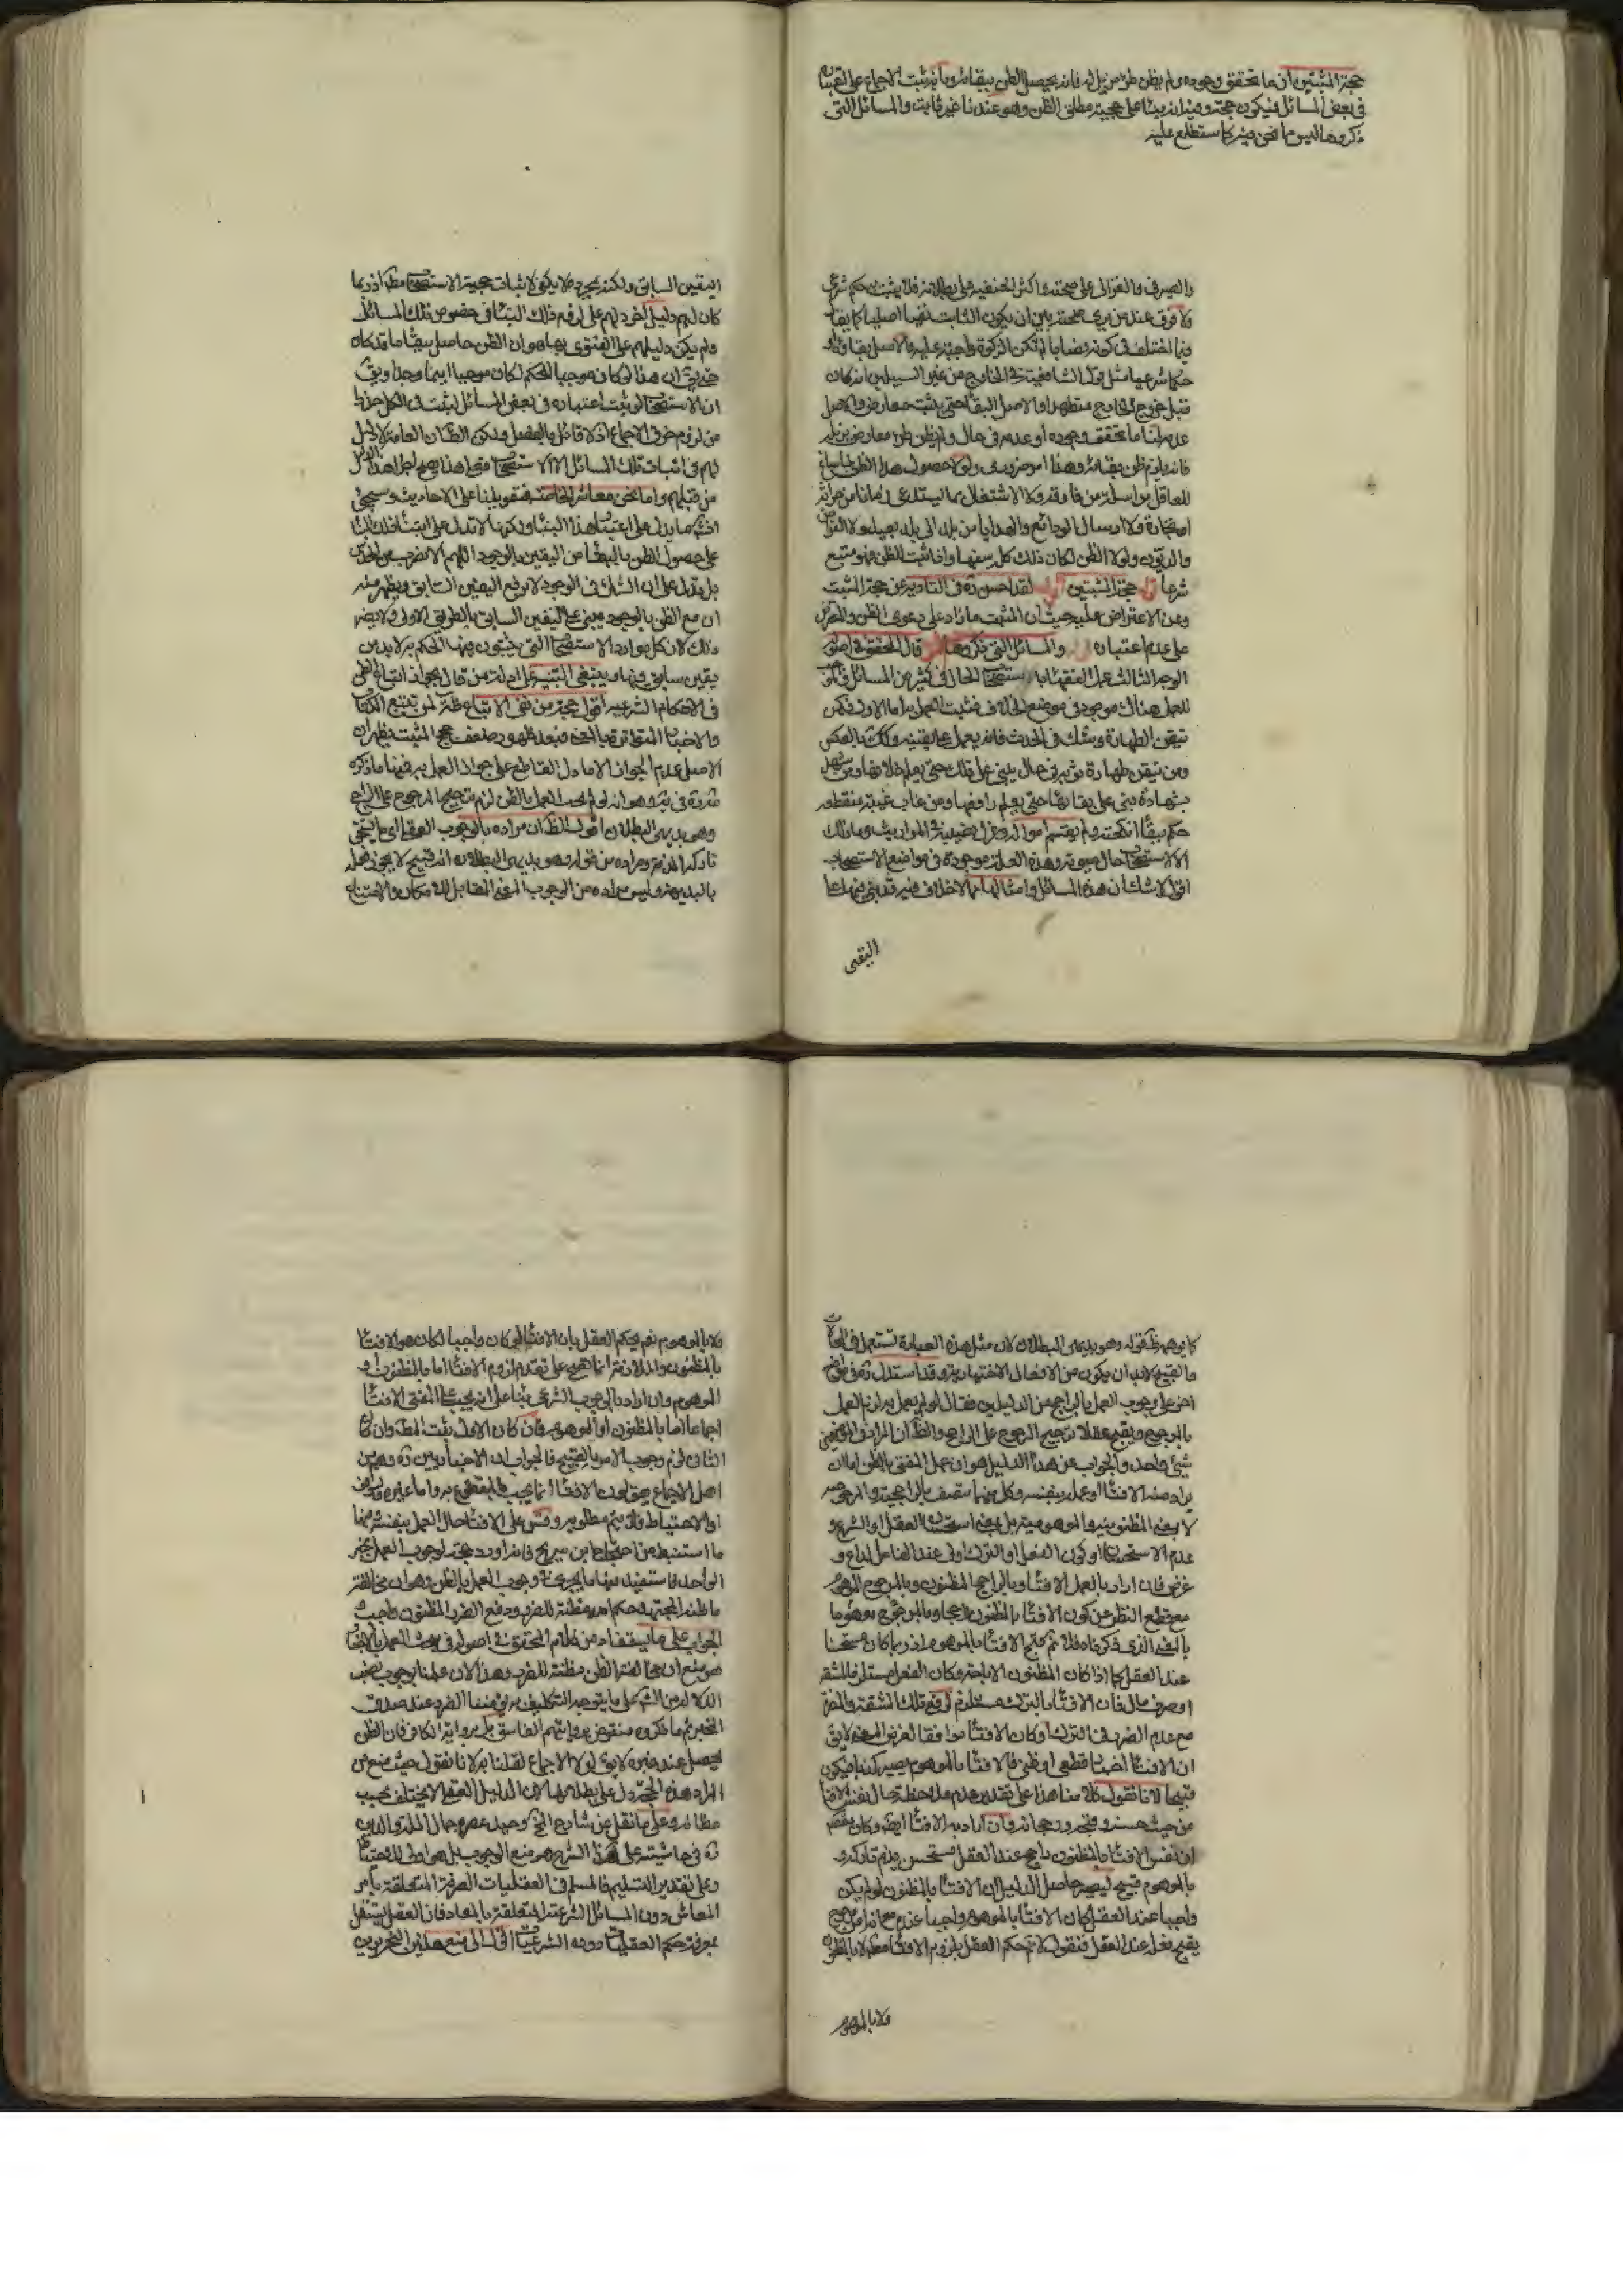 حجة المثبتين ان ما تحقق وجوده ولم يظن طرو مزيل له فانه يحصل الظن ببقائه وبانه ثبت الاجماع على اعتباره
في بعض المسائل فيكون حجة وفيه انه بناء على حجية مطلق الظن وهو عندنا غير ثابت والمسائل التي
ذكروها ليس مما نحن فيه كما ستطلع عليه
والصيرفي والغزالي على صحته واكثر الحنفية على بطلانه فلا يثبت به حكم شرعي
ولا فرق عند من يرى صحته بين ان يكون الثابت نفيا اصليا كما يقال
فيما اختلف في كونه نصابا لم تكن الزكوة واجبة عليه والاصل بقاؤه او
حكما شرعيا مثل قول الشافعية في الخارج من غير السبيلين انه كان
قبل خروج الخارج متطهرا والاصل البقاء حتى يثبت معارض والاصل
عدمه لنا ما تحقق وجوده او عدمه في حال ولم يظن طرو معارض يزيله
فانه يلزم ظن بقائه وهذا امر ضروري ولولا حصول هذا الظن لما ساغ
للعاقل مراسلة من فارقه ولا الاشتغال بما يستدعي زمانا من حراثة
او تجارة ولا ارسال الودائع والهدايا من بلد الى بلد بعيد ولا القراض
والديون ولولا الظن لكان ذلك كله سفها واذا ثبت الظن فهو متبع
شرعا قوله حجة المثبتين اقول لقد احسن ره في التادية عن حجة المثبت
وعن الاعتراض عليه حيث ان المثبت ما زاد على دعوى الظن والمعترض
على عدم اعتباره والمسائل التي ذكروها قال المحقق في اصوله
الوجه الثالث عمل الفقهاء باستصحاب الحال في كثير من المسائل والموجب
للعمل هناك موجود في موضع الخلاف فيثبت العمل به اما الاول فكمن
تيقن الطهارة وشك في الحدث فانه يعمل على يقينه وكذلك بالعكس
ومن تيقن طهارة ثوبه في حال يبني على ذلك حتى يعلم خلافها ومن شهد
بشهادة يبني على بقائها حتى يعلم رافعها ومن غاب غيبة منقطعة
حكم ببقاء انكحته ولم يقسم امواله وعزل نصيبه في المواريث وما ذلك
الا لاستصحاب حال حيوته وهذه العلة موجودة في مواضع الاستصحاب
اقول لا شك ان هذه المسائل وامثالها مما لا خلاف فيه قد بني فيها على
اليقين
اليقين السابق ولكنه بمجرده لا يكفي لاثبات حجية الاستصحاب مطلقا اذ ربما
كان لهم دليل اخر دلهم على لزوم ذلك البناء في خصوص تلك المسائل
ولم يكن دليلهم على الفتوى بها هو ان الظن حاصل ببقاء ما قد كان
حتى يقال ان هذا لو كان موجبا للحكم لكان موجبا اينما وجد او يقال
ان الاستصحاب لو ثبت اعتباره في بعض المسائل لثبت في الكل حذرا
من لزوم خرق الاجماع اذ لا قائل بالفصل ولكن الظاهر ان العامة لا دليل
لهم في اثبات تلك المسائل الا الاستصحاب فعلى هذا يصح اجراء هذا الدليل
من قبلهم واما نحن معاشر الخاصة فتعويلنا على الاحاديث وسيجيء
انشاء الله ما يدل على اعتبار هذا البناء ولكنها لا تدل على ابتناء ذلك البناء
على حصول الظن بالبقاء من اليقين بالوجود اللهم الا بضرب من الحدس
بل يدل على ان الشك في الوجود لا يرفع اليقين السابق ويظهر منه
ان مع الظن بالوجود يبنى على اليقين السابق بالطريق الاولى ولا يضر
ذلك لان كل موارد الاستصحاب التي يثبتون فيها الحكم به لا بد من
يقين سابق فيها وينبغي التنبيه على ادلة من قال بجواز اتباع الظن
في الاحكام الشرعية اقول حجة من نفى الاتباع ظاهرة لمن تتبع الكتاب
والاخبار المتواترة بالمعنى فبعد ظهور ضعف حجج المثبت يظهر ان
الاصل عدم الجواز الا ما دل القاطع على جواز العمل به فمنها ما ذكره
وهو انه لو لم يجب العمل بالظن لزم ترجيح المرجوح على الراجح
وهو بديهي البطلان اقول الظاهر ان مراده بالوجوب العقلي اي ما يستحق
تاركه الذم ومراده من قوله وهو بديهي البطلان انه قبيح لا يجوز فعله
بالبديهة وليس مراده من الوجوب المعنى المقابل للامكان والامتناع
كما يوهمه قوله وهو بديهي البطلان لان مثل هذه العبارة تستعمل في المحالات
والقبيح لا بد ان يكون من الافعال الاختيارية وقد استدل ره في موضع
اخر على وجوب العمل بالراجح من الدليلين فقال لو لم يعمل به لزم العمل
بالمرجوح ويقبح عقلا ترجيح المرجوح على الراجح والظاهر ان المراد في الموضعين
شيء واحد والجواب عن هذا الدليل هو ان عمل المفتي بالظن اما ان
يراد منه الافتاء او عمله بنفسه وكل منهما متصف بالراجحية والمرجوحية
لا بمعنى المظنونية والموهومية بل بمعنى استحسان العقل او الشرع و
عدم الاستحسان او كون الفعل او الترك اولى عند الفاعل لداع و
غرض فان اراد بالعمل الافتاء وبالراجح المظنون وبالمرجوح الموهوم
مع قطع النظر عن كون الافتاء بالمظنون راجحا وبالمرجوح موهوما
بالمعنى الذي ذكرناه فلا نم قبح الافتاء بالموهوم اذ ربما كان مستحسنا
عند العقل كما اذا كان المظنون الاباحة وكان الفعل مستلزما للمشقة
او صرف مال فان الافتاء بالترك مستلزم لرفع تلك المشقة والمضرة
مع عدم الضرر في الترك وكان الافتاء موافقا لغرض المفتي لا يقال
ان الافتاء اخبار قطعي او ظني فالافتاء بالموهوم يصير كذبا فيكون
قبيحا لانا نقول كلامنا هذا على تقدير عدم ملاحظة حال نفس الافتاء
من حيث حسنه وقبحه ورجحانه وان اراد به الافتاء ايضا وكان غرضه
ان نفس الافتاء بالمظنون راجح عند العقل مستحسن يذم تاركه و
بالموهوم قبيح ليصير حاصل الدليل ان الافتاء بالمظنون لو لم يكن
واجبا عند العقل لكان الافتاء بالموهوم واجبا عنده مع انه امر مرجوح
يقبح فعله عند العقل فنقول لا نم حكم العقل بلزوم الافتاء مطلقا لا بالمظنون
ولا بالموهوم
ولا بالموهوم نعم يحكم العقل بان الافتاء لو كان واجبا لكان هو الافتاء
بالمظنون والملازمة انما هي على تقدير لزوم الافتاء اما بالمظنون او
الموهوم وان اراد بالوجوب الشرعي بناء على انه يجب على المفتي الافتاء
اجماعا اما بالمظنون او الموهوم فان كان الاول يثبت المطلوب وان كان
الثاني لزم وجوب الامر بالقبيح فالجواب ان الاخباريين ره وهم من
اهل الاجماع يقولون الافتاء انما يجب بالمقطوع به واما غيره فالتوقف
او الاحتياط فلا يتم مطلوبه وقس على الافتاء حال العمل بنفسه ومنها
ما استنبط من احتجاج ابن سريج فانه اورد حجة لوجوب العمل بخبر
الواحد فاستفيد منها ما يجري في وجوب العمل بالظن وهو ان مخالفة
ما ظنه المجتهد حكم الله مظنة للضرر ودفع الضرر المظنون واجب و
الجواب على ما يستفاد من كلام المحقق في اصوله في بحث العمل بالاخبار
هو منع ان مخالفة الظن مظنة للضرر وهذا لان علمنا بوجوب نصب
الدلالة من الشرع على ما يتوجه التكليف به يؤمننا الضرر عند صدق
المخبر ثم ما ذكروه منقوض برواية الفاسق بل برواية الكافر فان الظن
يحصل عند خبره لا يقال لولا الاجماع لقلنا به لانا نقول حيث منع من
اطراد هذه الحجة دل على بطلانها لان الدليل العقلي لا يختلف بحسب
مظانه وعلى ما نقل عن شارح المختصر وحيد عصره جمال الملة والدين
ره في حاشيته على هذا الشرح هو منع الوجوب بل هو اولى للاحتياط
وعلى تقدير التسليم فالمسلم في العقليات الصرفة المتعلقة بامر
المعاش دون المسائل الشرعية المتعلقة بالمعاد فان العقل يستقل
بمعرفة حكم العقليات دون الشرعيات اقول الى منع هذين التحريرين